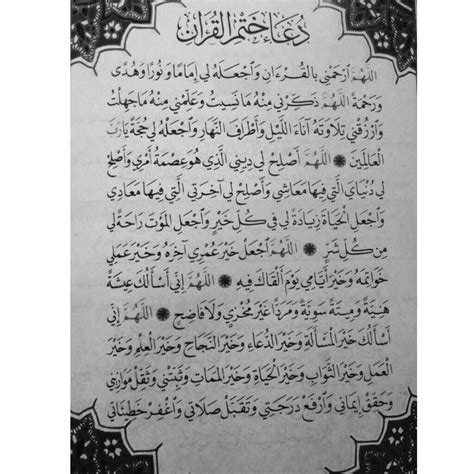 دُعَاءُ خَتْمِ الْقُرْآنِ
اللَّهُمَّ ارْحَمْنِي بِالْقُرْءَانِ وَاجْعَلْهُ لِي إِمَامًا وَنُورًا وَهُدًى
وَرَحْمَةً اللَّهُمَّ ذَكِّرْنِي مِنْهُ مَا نَسِيتُ وَعَلِّمْنِي مِنْهُ مَا جَهِلْتُ
وَارْزُقْنِي تِلَاوَتَهُ آنَاءَ اللَّيْلِ وَأَطْرَافَ النَّهَارِ وَاجْعَلْهُ لِي حُجَّةً يَارَبَّ
الْعَالَمِينَ ۞ اللَّهُمَّ أَصْلِحْ لِي دِينِي الَّذِي هُوَ عِصْمَةُ أَمْرِي وَأَصْلِحْ
لِي دُنْيَايَ الَّتِي فِيهَا مَعَاشِي وَأَصْلِحْ لِي آخِرَتِي الَّتِي فِيهَا مَعَادِي
وَاجْعَلِ الْحَيَاةَ زِيَادَةً لِي فِي كُلِّ خَيْرٍ وَاجْعَلِ الْمَوْتَ رَاحَةً لِي
مِنْ كُلِّ شَرٍّ ۞ اللَّهُمَّ اجْعَلْ خَيْرَ عُمْرِي آخِرَهُ وَخَيْرَ عَمَلِي
خَوَاتِمَهُ وَخَيْرَ أَيَّامِي يَوْمَ أَلْقَاكَ فِيهِ ۞ اللَّهُمَّ إِنِّي أَسْأَلُكَ عِيشَةً
هَنِيَّةً وَمِيتَةً سَوِيَّةً وَمَرَدًّا غَيْرَ مُخْزِي وَلَا فَاضِحٍ ۞ اللَّهُمَّ إِنِّي
أَسْأَلُكَ خَيْرَ الْمَسْأَلَةِ وَخَيْرَ الدُّعَاءِ وَخَيْرَ النَّجَاحِ وَخَيْرَ الْعِلْمِ وَخَيْرَ
الْعَمَلِ وَخَيْرَ الثَّوَابِ وَخَيْرَ الْحَيَاةِ وَخَيْرَ الْمَمَاتِ وَثَبِّتْنِي وَثَقِّلْ مَوَازِينِي
وَحَقِّقْ إِيمَانِي وَارْفَعْ دَرَجَتِي وَتَقَبَّلْ صَلَاتِي وَاغْفِرْ خَطِيئَاتِي